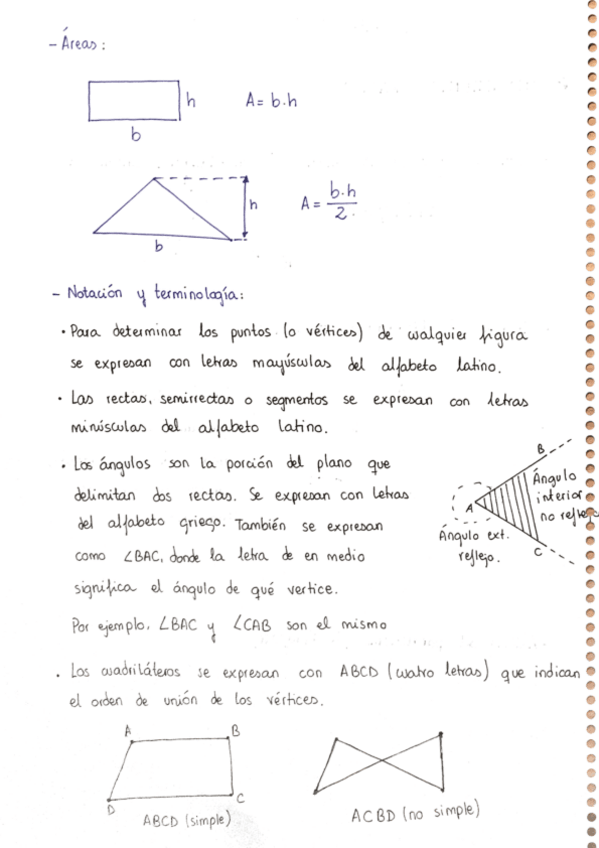 - Áreas:
h
A = b·h
b
h
A = b·h
2
b
- Notación y terminología:
· Para determinar los puntos (o vértices) de cualquier figura
se expresan con letras mayúsculas del alfabeto latino.
· Las rectas, semirrectas o segmentos se expresan con letras
minúsculas del alfabeto latino.
· Los ángulos son la porción del plano que
delimitan dos rectas. Se expresan con letras
del alfabeto griego. También se expresan
como ∠BAC, donde la letra de en medio
significa el ángulo de qué vertice.
Por ejemplo, ∠BAC y ∠CAB son el mismo
B
A
C
Ángulo
interior
no reflejo
Ángulo ext.
reflejo.
· Los cuadriláteros se expresan con ABCD (cuatro letras) que indican
el orden de unión de los vértices.
A
B
D
C
ABCD (simple)
ACBD (no simple)